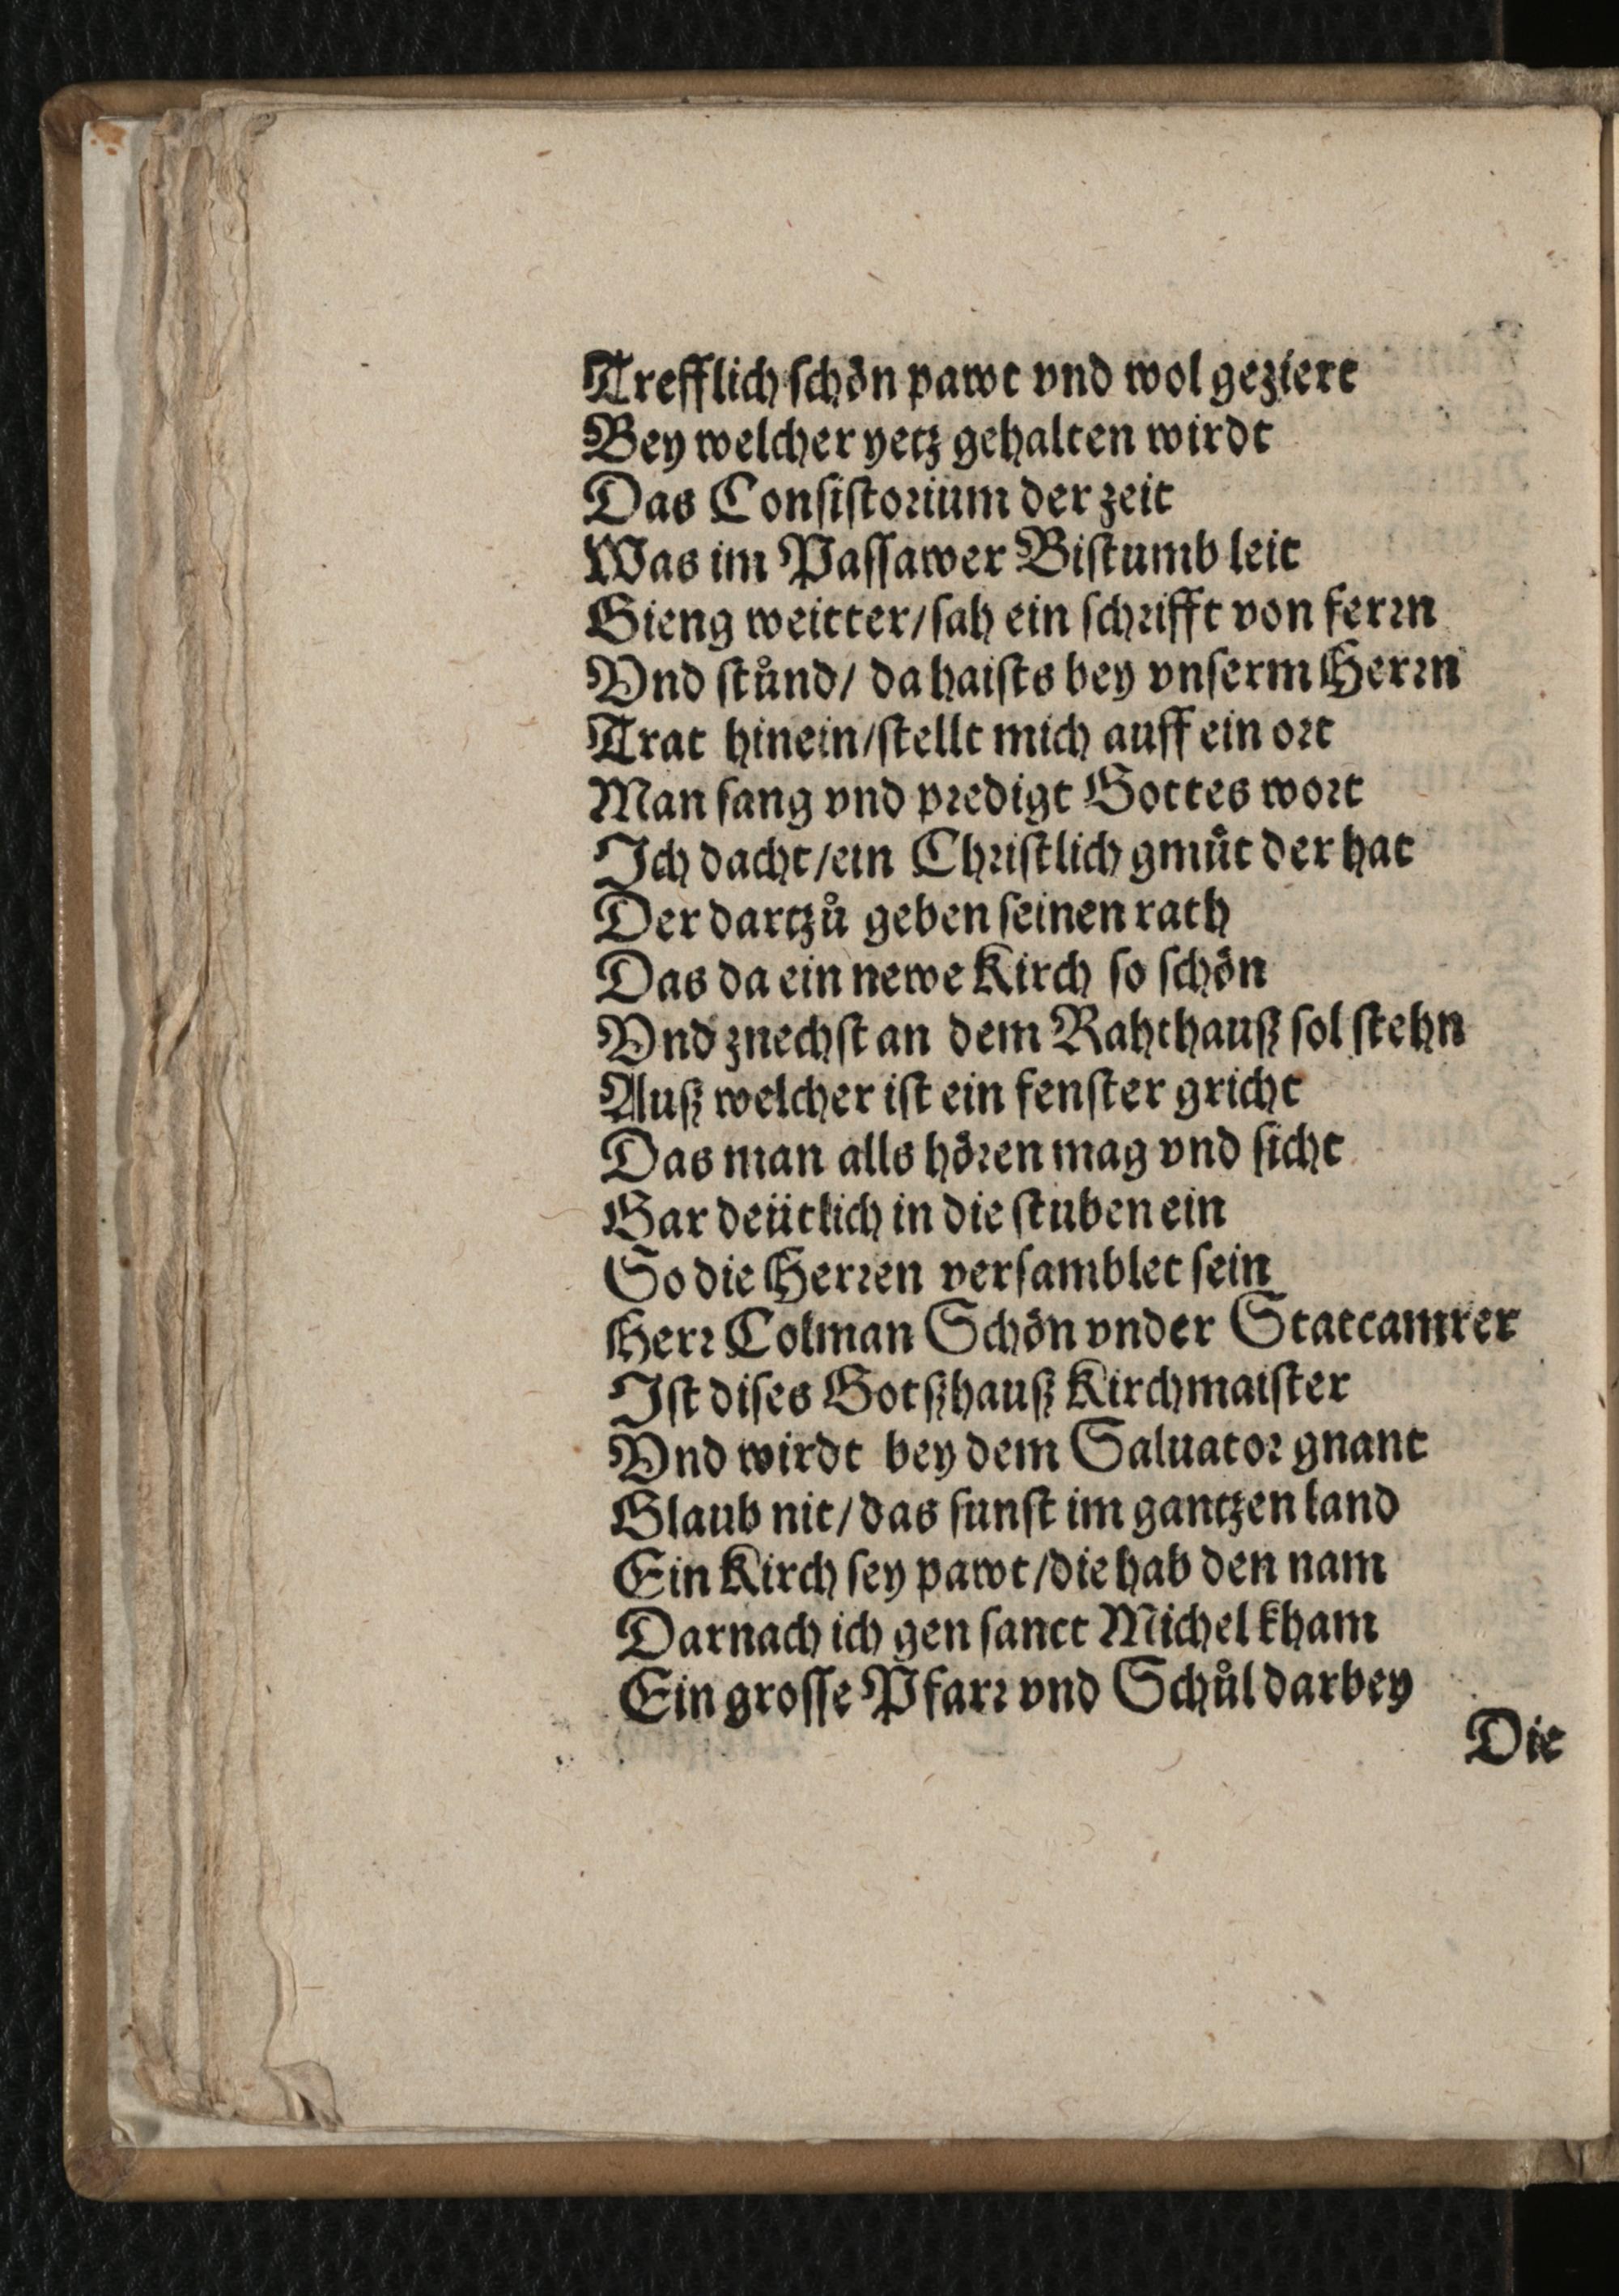 Trefflich ſchön pawt vnd wol geziert
Bey welcher yetz gehalten wirdt
Das Conſiſtoꝛium der zeit
Was im Paſſawer Biſtumb leit
Gieng weitter/ſah ein ſchꝛifft von ferꝛn
Vnd ſtůnd/ da haiſts bey vnſerm Herꝛn
Trat hinein/ſtellt mich auff ein oꝛt
Man ſang vnd pꝛedigt Gottes woꝛt
Ich dacht/ein Chꝛiſtlich gmůt der hat
Der dartzů geben ſeinen rath
Das da ein newe Kirch ſo ſchön
Vnd znechſt an dem Rahthauß ſol ſtehn
Auß welcher iſt ein fenſter gricht
Das man alls höꝛen mag vnd ſicht
Gar deütlich in die ſtuben ein
So die Herꝛen verſamblet ſein
Herꝛ Colman Schön vnder Statcamrer
Iſt diſes Gotßhauß Kirchmaiſter
Vnd wirdt bey dem Saluatoꝛ gnant
Glaub nit/das ſunſt im gantzen land
Ein Kirch ſey pawt/die hab den nam
Darnach ich gen ſanct Michel kham
Ein groſſe Pfarꝛ vnd Schůl darbey
Die